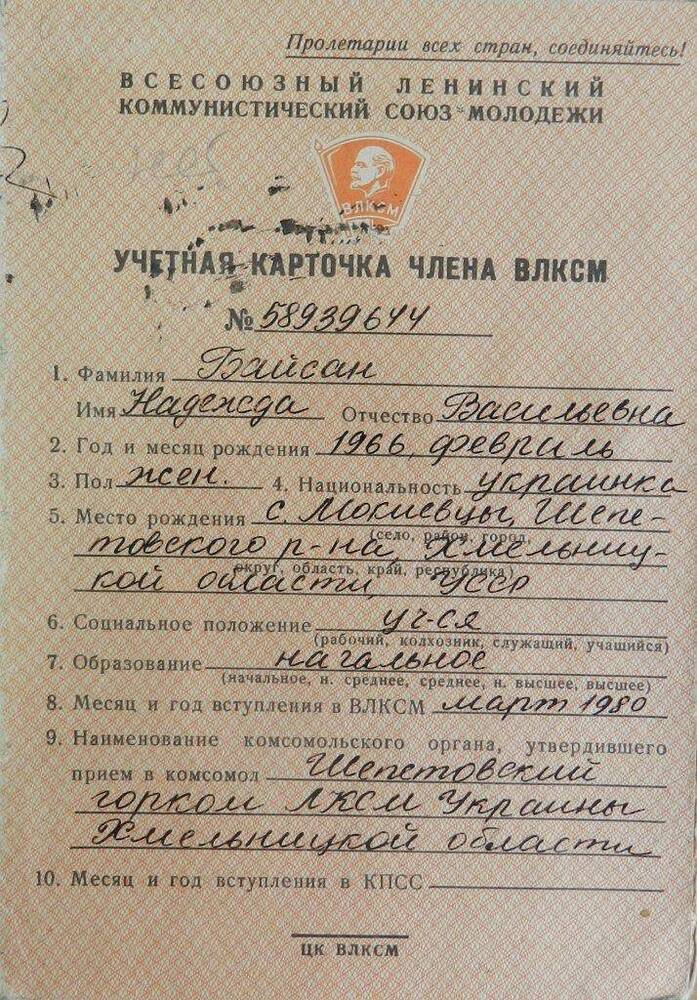 Пролетарии всех стран, соединяйтесь!
ВСЕСОЮЗНЫЙ ЛЕНИНСКИЙ
КОММУНИСТИЧЕСКИЙ СОЮЗ МОЛОДЕЖИ
ВЛКСМ
УЧЕТНАЯ КАРТОЧКА ЧЛЕНА ВЛКСМ
№ 58939644
1. Фамилия Байсан
Имя Надежда Отчество Васильевна
2. Год и месяц рождения 1966, февраль
3. Пол жен. 4. Национальность украинка
5. Место рождения с. Мокиевцы, Шепе-
(село, район, город,
товского р-на, Хмельниц-
округ, область, край, республика)
кой области УССР
6. Социальное положение уч-ся
(рабочий, колхозник, служащий, учащийся)
7. Образование начальное
(начальное, н. среднее, среднее, н. высшее, высшее)
8. Месяц и год вступления в ВЛКСМ март 1980
9. Наименование комсомольского органа, утвердившего
прием в комсомол Шепетовский
горком ЛКСМ Украины
Хмельницкой области
10. Месяц и год вступления в КПСС
ЦК ВЛКСМ